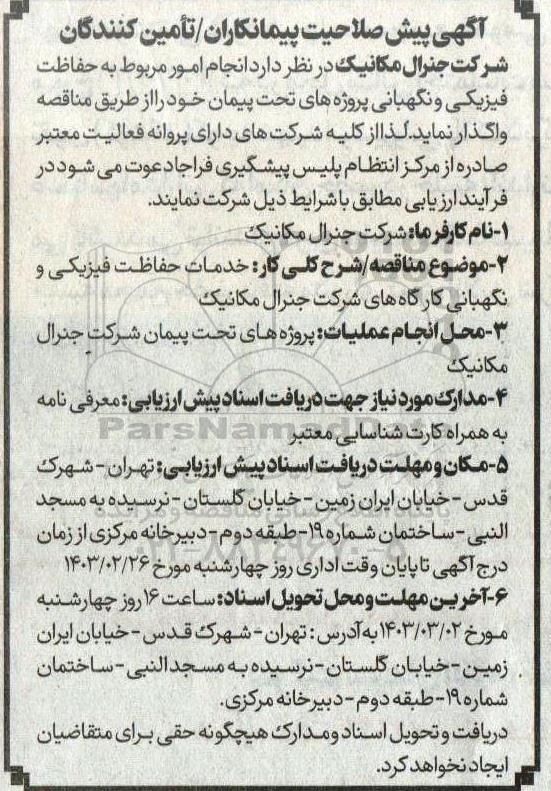 آگهی پیش صلاحیت پیمانکاران/تأمین کنندگان
شرکت جنرال مکانیک در نظر دارد انجام امور مربوط به حفاظت
فیزیکی و نگهبانی پروژه های تحت پیمان خود را از طریق مناقصه
واگذار نماید. لذا از کلیه شرکت های دارای پروانه فعالیت معتبر
صادره از مرکز انتظام پلیس پیشگیری فراجا دعوت می شود در
فرآیند ارزیابی مطابق با شرایط ذیل شرکت نمایند.
۱-نام کارفرما: شرکت جنرال مکانیک
۲-موضوع مناقصه/شرح کلی کار: خدمات حفاظت فیزیکی و
نگهبانی کارگاه های شرکت جنرال مکانیک
۳-محل انجام عملیات: پروژه های تحت پیمان شرکت جنرال
مکانیک
۴-مدارک مورد نیاز جهت دریافت اسناد پیش ارزیابی: معرفی نامه
به همراه کارت شناسایی معتبر
ParsNamadData
۵-مکان و مهلت دریافت اسناد پیش ارزیابی: تهران-شهرک
قدس-خیابان ایران زمین-خیابان گلستان-نرسیده به مسجد
النبی-ساختمان شماره ۱۹-طبقه دوم-دبیرخانه مرکزی از زمان
درج آگهی تا پایان وقت اداری روز چهارشنبه مورخ ۱۴۰۳/۰۲/۲۶
۶-آخرین مهلت و محل تحویل اسناد: ساعت ۱۶ روز چهارشنبه
مورخ ۱۴۰۳/۰۳/۰۲ به آدرس: تهران-شهرک قدس-خیابان ایران
زمین-خیابان گلستان-نرسیده به مسجد النبی-ساختمان
شماره ۱۹-طبقه دوم-دبیرخانه مرکزی.
دریافت و تحویل اسناد و مدارک هیچگونه حقی برای متقاضیان
ایجاد نخواهد کرد.